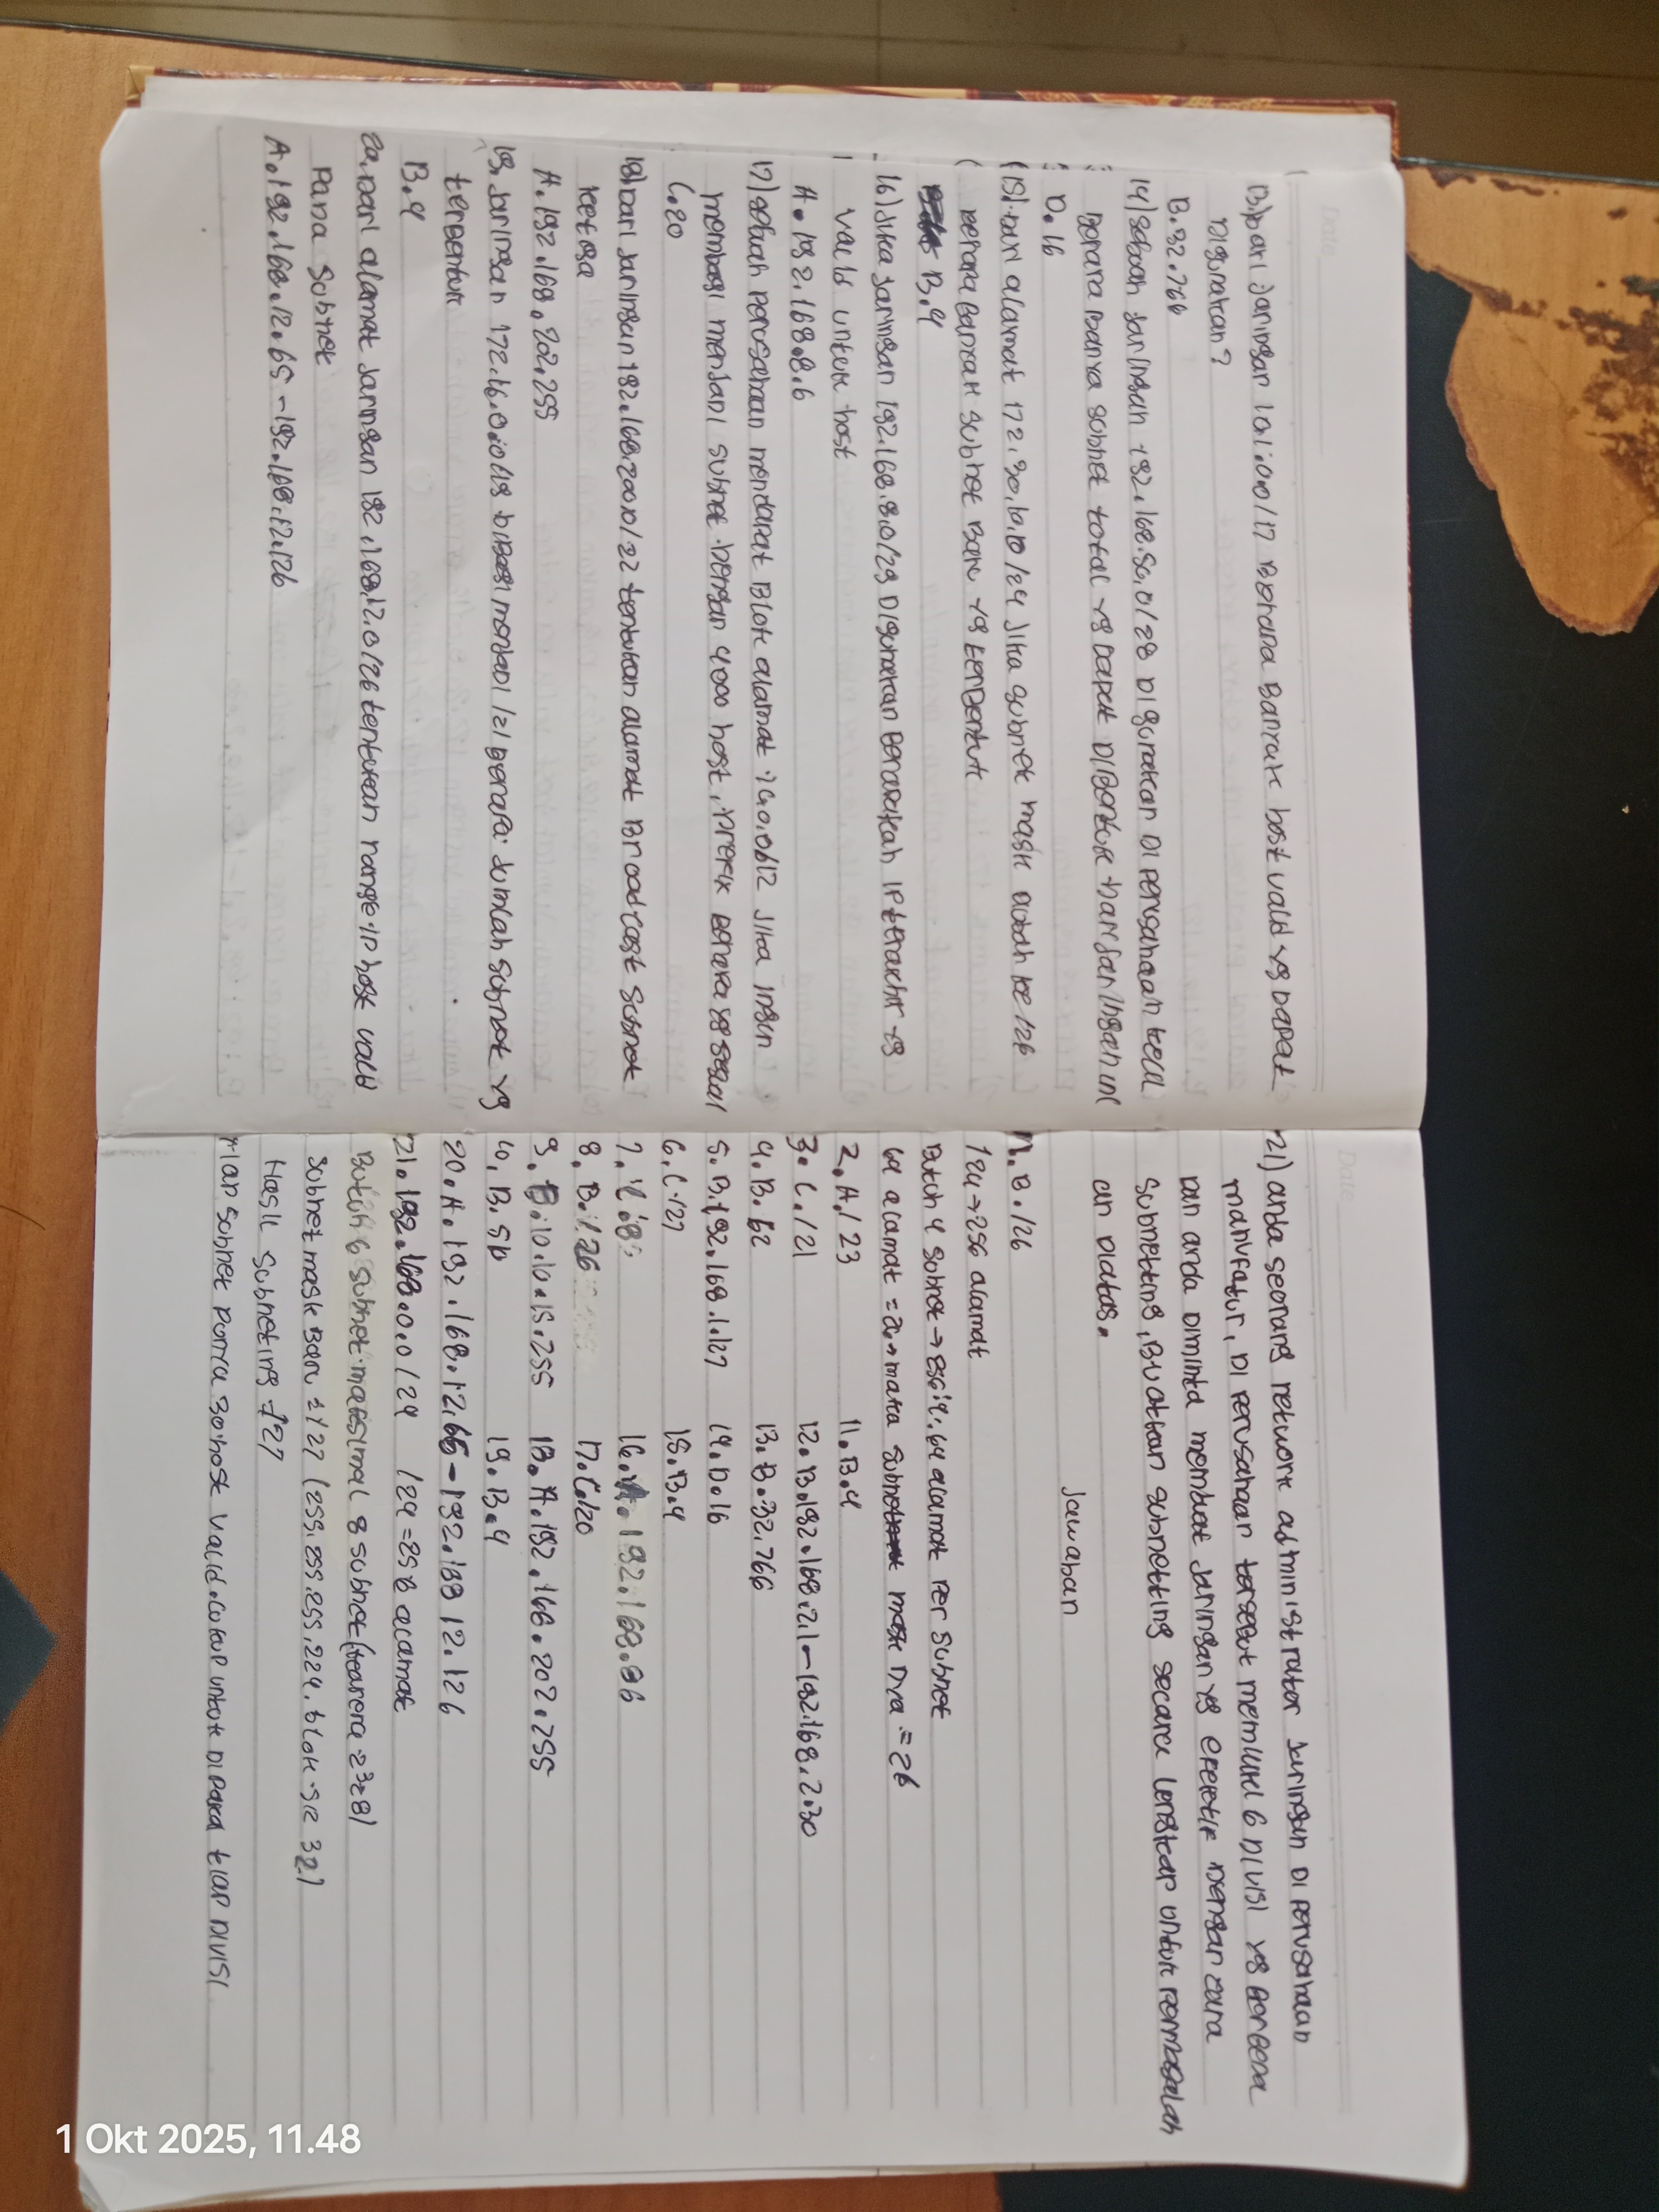 Date
13).Dari Jaringan 10.1.0.0/17 Berapa Banyak host valid yg Dapat
Digunakan?
B.32.766
14) Sebuah Jaringan 192.168.50.0/28 Digunakan Di Perusahaan kecil
Berapa banya subnet total yg Dapat DiBentuk Dari Jaringan ini
D.16
15).Dari alamat 172.30.10.0/24 Jika subnet mask diubah ke /26
Berapa Banyak subnet Baru yg terbentuk
B.4
16) Jika Jaringan 192.168.8.0/29 Digunakan Berapakah IP terakhir yg
Valid untuk host
A.192.168.8.6
17) Sebuah perusahaan mendapat Blok alamat 10.0.0/12 Jika ingin
membagi menjadi subnet Dengan 4000 host, Prefix Berapa yg sesuai
C.20
18) Dari Jaringan 192.168.200.0/22 tentukan alamat Broadcast subnet
ketiga
A.192.168.202.255
19. Jaringan 172.16.0.0/19 DiBagi menjadi /21 Berapa Jumlah Subnet yg
terbentuk
B.4
20.Dari alamat Jaringan 192.168.12.0/26 tentukan range IP host valid
Pada Subnet
A.192.168.12.65-192.168.12.126
Date
21) anda seorang network administrator Jaringan Di Perusahaan
manufatur, Di Perusahaan tersebut memiliki 6 Divisi yg Berbeda
Dan anda Diminta membuat Jaringan yg efektif Dengan cara
Subnetting, Buatkan subnetting secara lengkap untuk Permasalah
an Diatas.
Jawaban
1. B./26
124→256 alamat
Butuh 4 subnet → 256:4:64 alamat Per subnet
64 alamat = 26 maka subnet mask nya = 26
2.A./23 11.B.4
3.C./21 12.B.192.168.2.1-192.168.2.30
4.B.62 13.B.32.766
5.B.192.168.1.127 14.D.16
6.C./27 15.B.4
7.C.8 16.A.192.168.8.6
8.B./26 17.C./20
9.B.10.10.15.255 18.A.192.168.202.255
10.B.510 19.B.4
20.A.192.168.12.65-192.188 12.126
21.192.168.0.0/24 /24=256 alamat
Butuh 6 subnet maksimal 8 subnet (karena 2³=8)
Subnet mask Baru =/27 (255.255.255.224.blok size 32)
Hasil Subneting =/27
Tiap Subnet Punya 30 host Valid.Cukup untuk DiPakai tiap Divisi
1 Okt 2025, 11.48